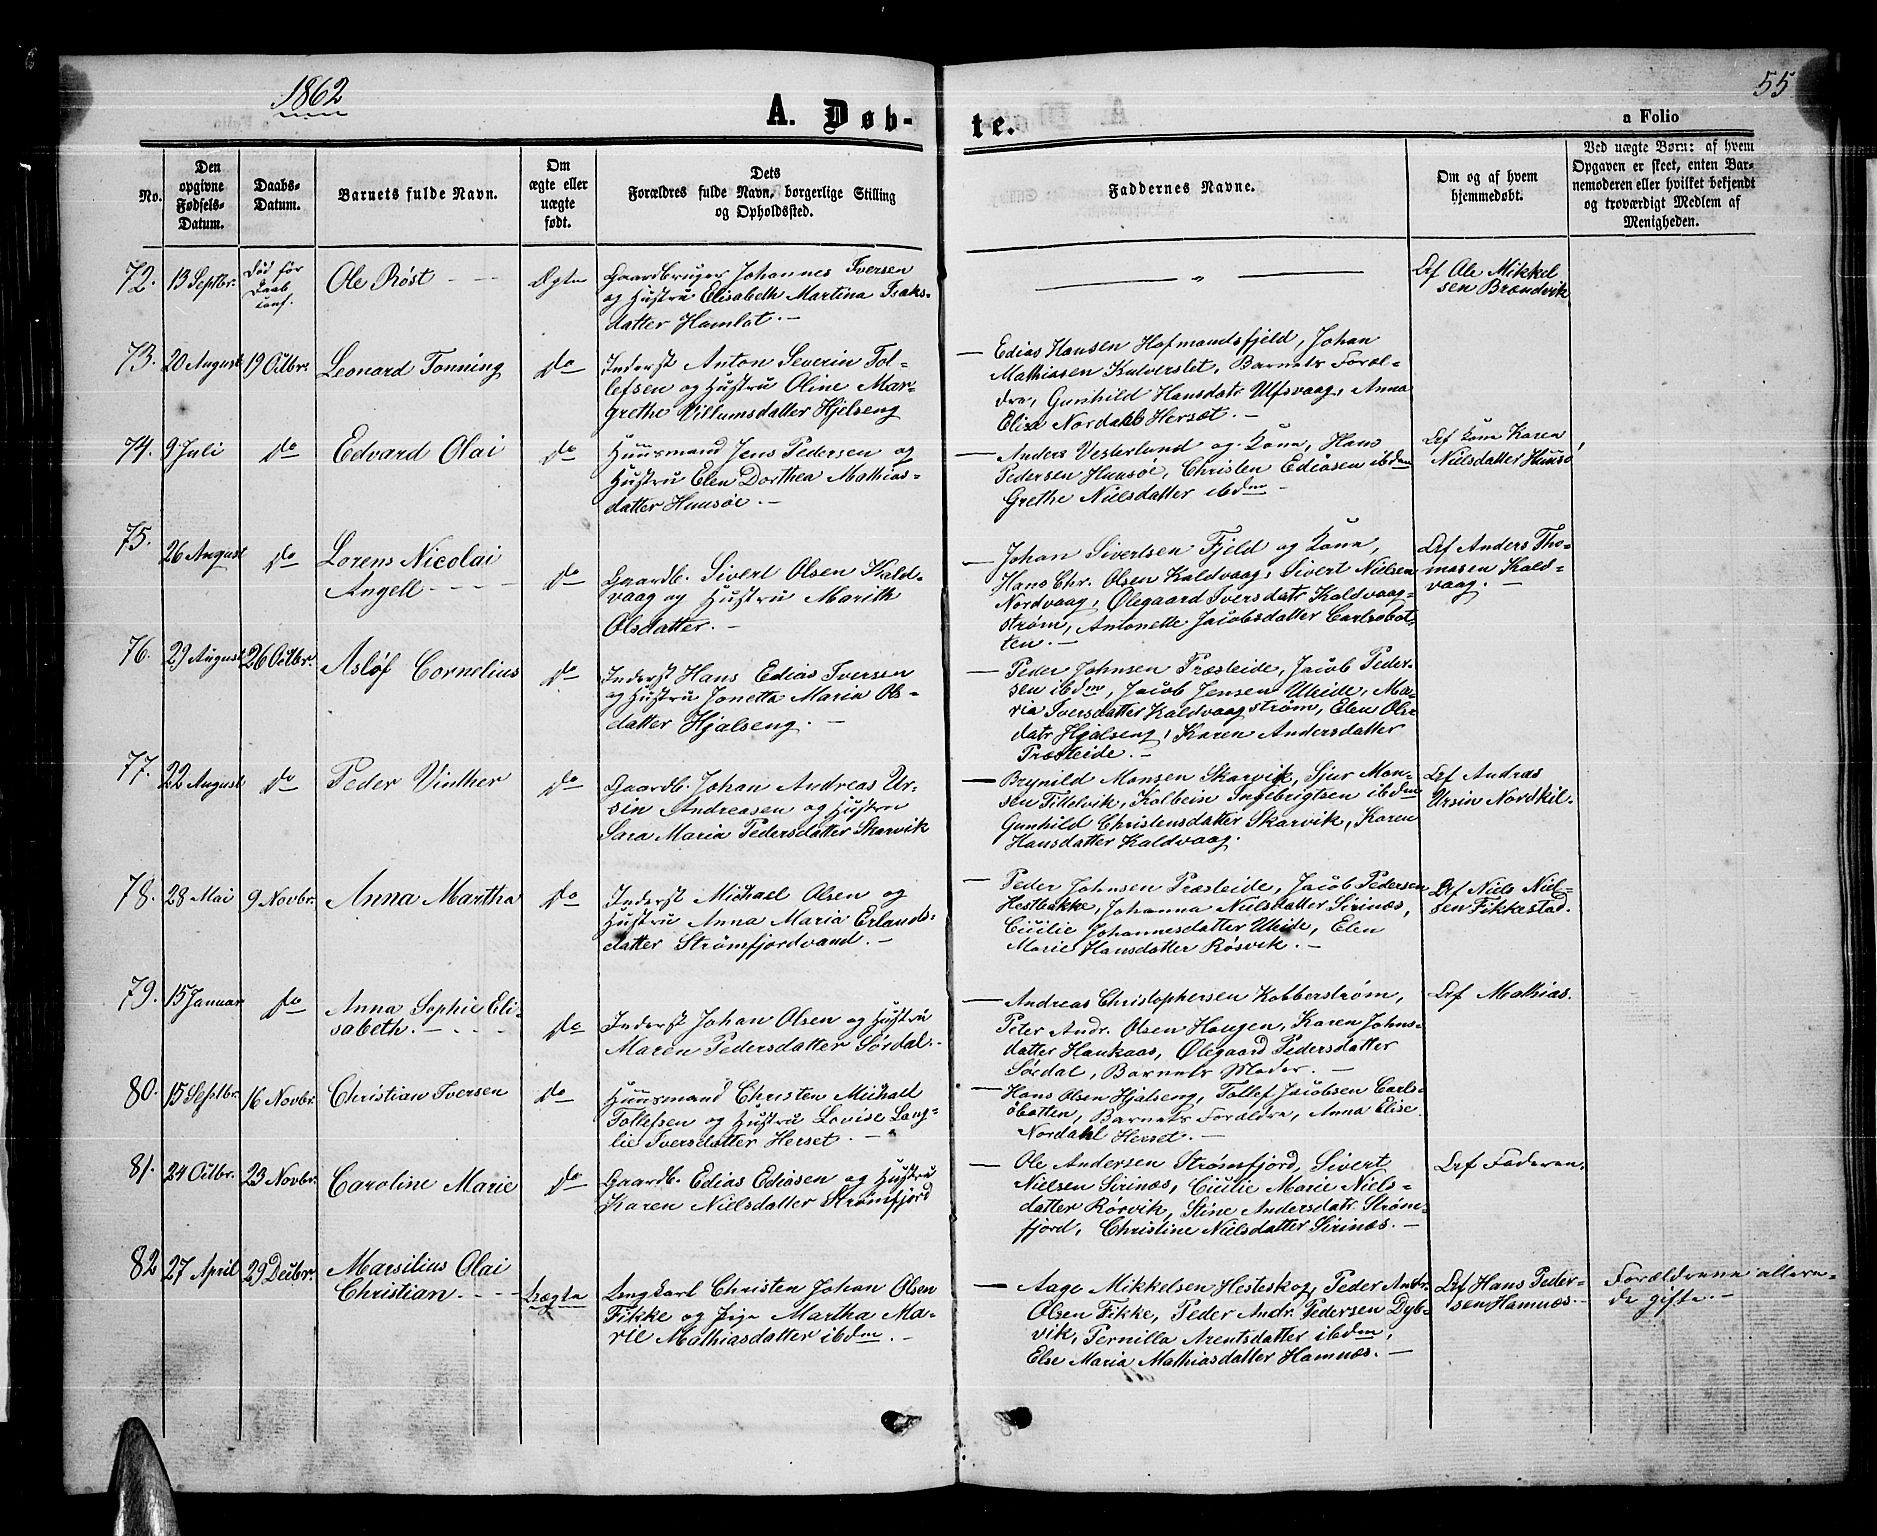 1862
55
A. Døb-
te.
a Folio
No.
Den
opgivne
Fødsels-
Datum.
Daabs-
Datum.
Barnets fulde Navn.
Om
ægte eller
uægte
født.
Dets
Forældres fulde Navn, borgerlige Stilling
og Opholdssted.
Faddernes Navne.
Om og af hvem
hjemmedøbt.
Ved uægte Børn: af hvem
Opgaven er skeet, enten Bar-
nemoderen eller hvilket bekjendt
og troværdigt Medlem af
Menigheden.
72. 13 Septbr.
Død før
Daab
conf.
Ole Røst
Ægte
Gaardbruger Johannes Iversen
og Hustru Elisabeth Martina Isaks-
datter Hamlot. —
— " —
Lrf Ole Mikkel
sen Brændvik
73. 20 August 19 Octbr. Leonard Tonning do
Inderst Anton Severin Tol-
lefsen og Hustru Oline Mar-
grethe Villumsdatter Hjelseng
— Edias Hansen Hofmandsfjeld, Johan
Mathiasen Kalverslet, Barnets Foræl-
dre, Gunhild Hansdatr. Ulfsvaag, Anna
Elise Nordahl Herset. —
74. 9 Juli do Edvard Olai do
Huusmand Jens Pedersen og
Hustru Elen Dorthea Mathias-
datter Huusøe. —
— Anders Vesterlund og Kone, Hans
Pedersen Huusøe, Christen Ediasen ibdm
Grethe Nielsdatter ibdm —
Lrf Kone Karen
Nielsdatter Huusø
75. 26 August do
Lorens Nicolai
Angell
do
Gaardb. Sivert Olsen Kald-
vaag og Hustru Marith
Olsdatter. —
— Johan Sivertsen Fjeld og Kone,
Hans Chr. Olsen Kaldvaag, Sivert Nielsen
Nordvaag, Olegaard Iversdatr Kaldvaag-
strøm, Antonette Jacobsdatter Carlsøbot-
ten. —
Lrf Anders Tho-
masen Kald-
vaag. —
76. 29 August 26 Octbr. Asløf Cornelius do
Inderst Hans Edias Iversen
og Hustru Jonetta Maria Ols-
datter Hjalseng. —
— Peder Johnsen Præsteide, Jacob Peder-
sen ibdm, Jacob Jensen Uleide, Ma-
ria Iversdatter Kaldvaagstrøm, Elen Ols-
datr Hjalseng, Karen Andersdatter
Præsteide. —
77. 22 August do Peder Vinther do
Gaardb. Johan Andreas Ur-
sin Andreasen og Hustru
Sara Maria Pedersdatter Skarvik
— Brynild Monsen Skarvik, Sjur Mon-
sen Tittelvik, Kolbein Ingebrigtsen ibdm
Gunhild Christensdatter Skarvik, Karen
Hansdatter Kaldvaag.
Lrf Andras
Ursin Nordkil.
78. 28 Mai 9 Novbr. Anna Martha do
Inderst Michael Olsen og
Hustru Anna Maria Erlands-
datter Strømfjordvand. —
— Peder Johnsen Præsteide, Jacob Pedersen
Hestbakke, Johanna Nielsdatter Sirinæs,
Cicilie Johannesdatter Uleide, Elen
Marie Hansdatter Røsvik. —
Lrf Niels Niel-
sen Fikkestad.
79. 15 Januar do
Anna Sophie Eli-
sabeth.
do
Inderst Johan Olsen og Hustru
Maren Pedersdatter Sørdal. —
— Andreas Christophersen Kobberstrøm,
Peter Andr. Olsen Haugen, Karen Johns-
datter Haukaas, Olegaard Pedersdatter
Sørdal, Barnets Moder. —
Lrf Mathias.
80. 15 Septbr. 16 Novbr. Christian Iversen do
Huusmand Christen Michael
Tollefsen og Hustru Lovise Lang-
lie Iversdatter Herset. —
— Hans Olsen Hjalseng, Tollef Jacobsen Carls-
øbotten, Barnets Forældre, Anna Elise
Nordahl Herset. —
81. 24 Octbr. 23 Novbr. Caroline Marie do
Gaardb. Edias Ediasen og Hustru
Karen Nielsdatter Strømfjord
— Ole Andersen Strømsfjord, Sivert
Nielsen Sirinæs, Cicilie Marie Niels-
datter Rørvik, Stine Andersdatr. Strøm-
fjord, Christine Nielsdatter Sirinæs. —
Lrf Faderen.
82 27 April 29 Decbr.
Marsilius Olai
Christian
Uægte
Ungkarl Christen Johan Olsen
Fikke og Pige Martha Ma-
rie Mathiasdatter ibdm. —
— Aage Mikkelsen Hesteskog, Peder Andr.
Olsen Fikke, Peder Andr. Pedersen Dyb-
vik, Pernilla Arentsdatter ibdm,
Else Maria Mathiasdatter Hamnæs. —
Lrf Hans Peder-
sen Hamnæs. —
Forældrene allere-
de gifte. —